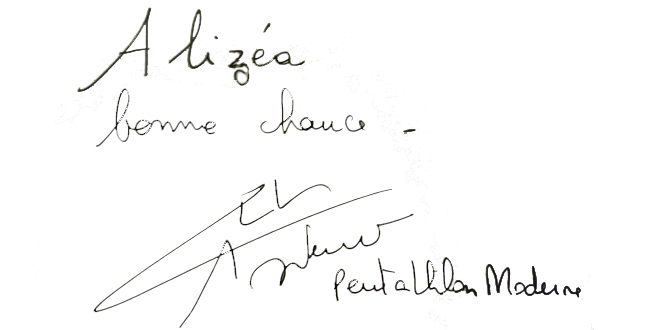 Alizéa
bonne chance -
Pentathlon Moderne